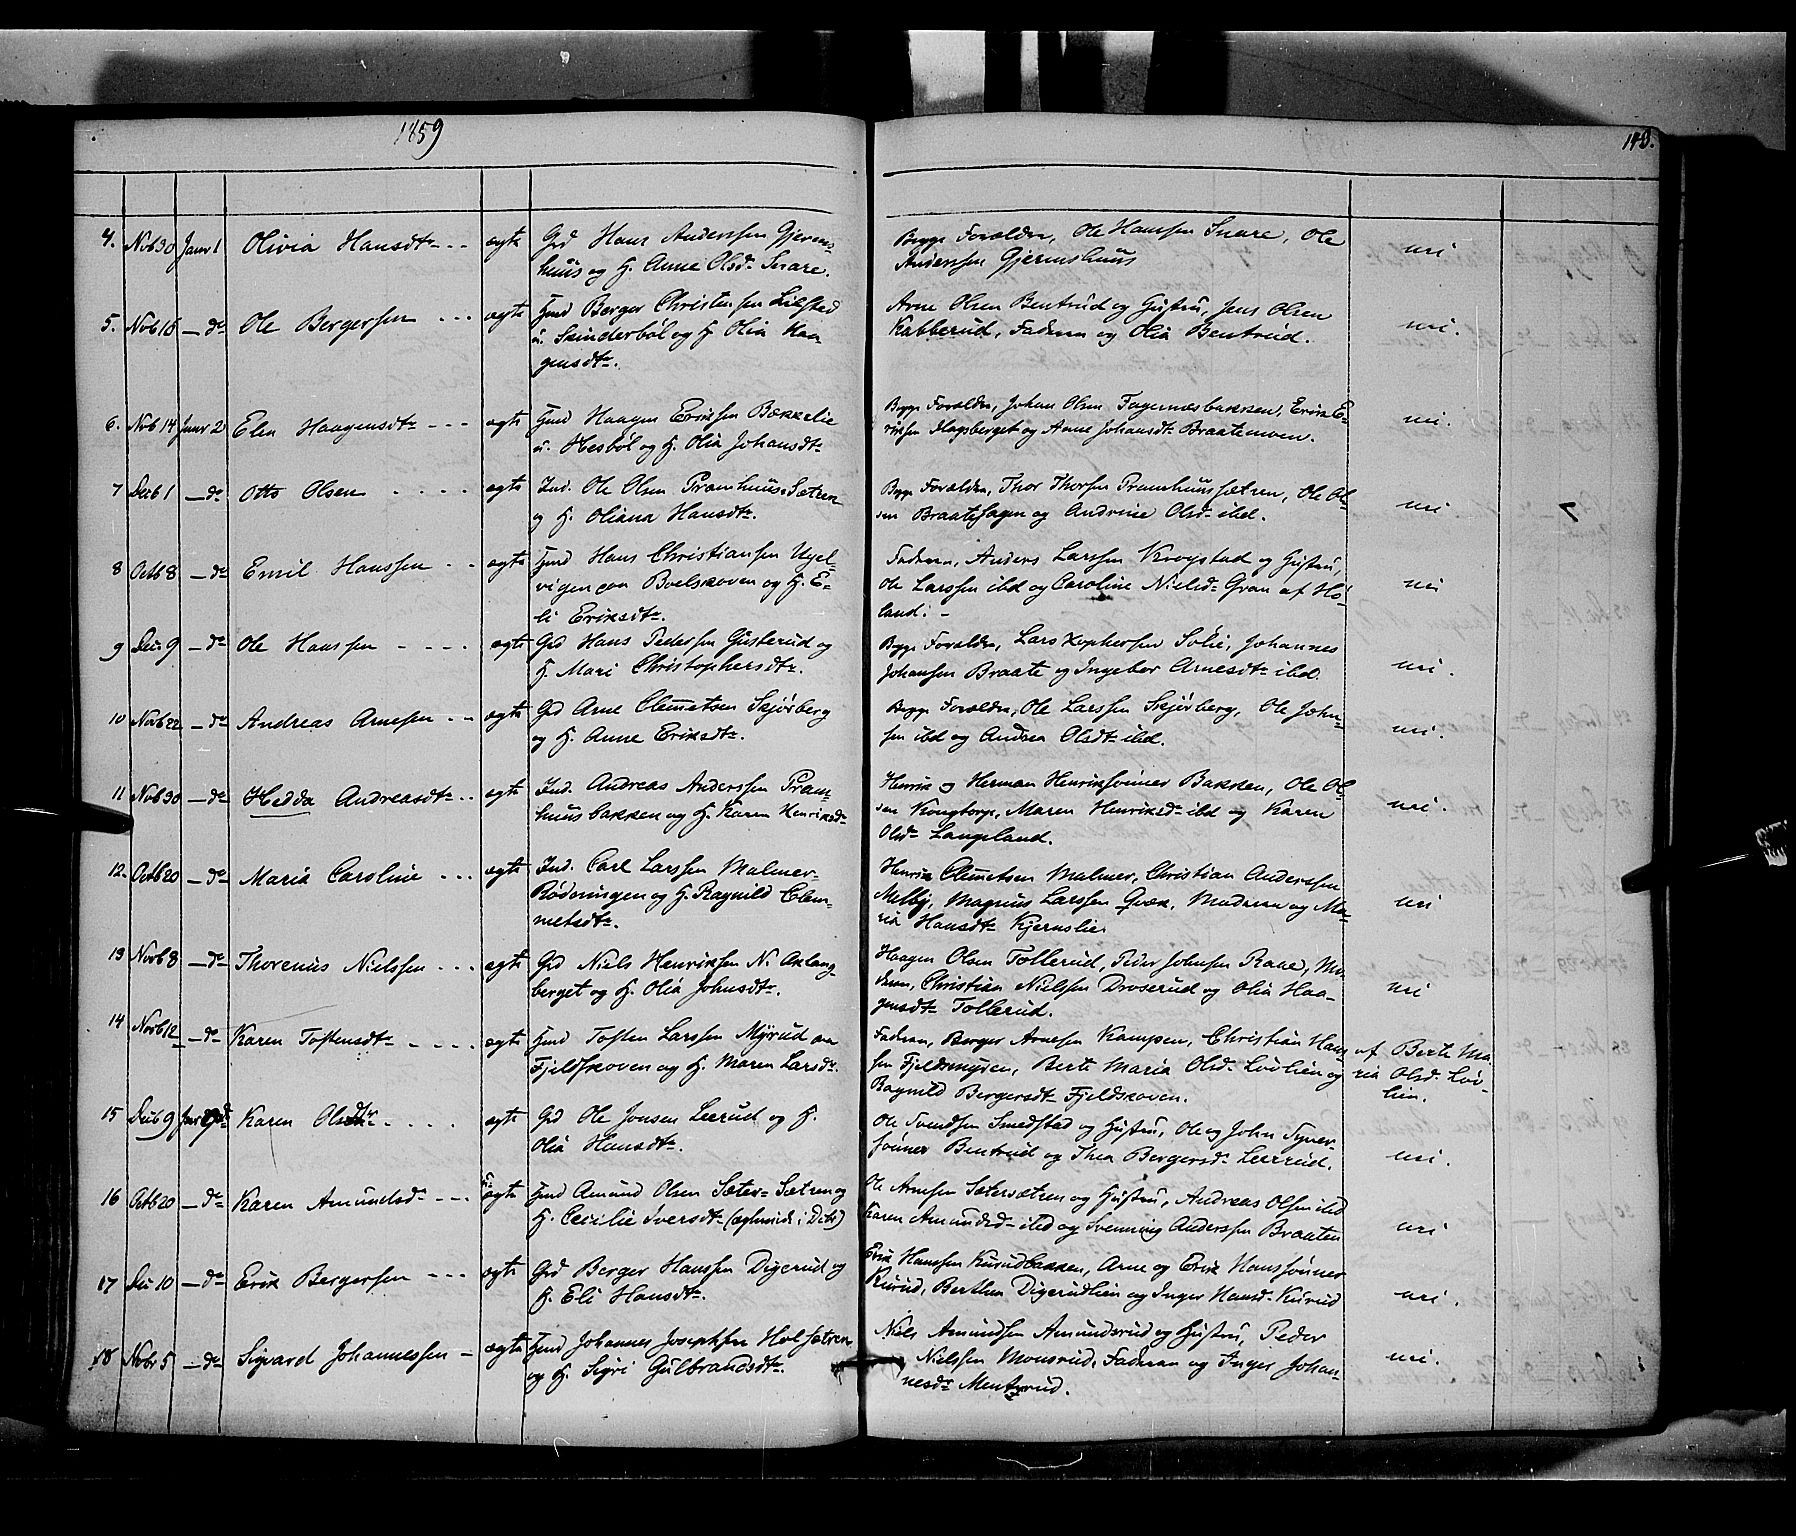 1859
143.
4. Novb 30 Janr 1 Olivia Hansdtr ægte Grd Hans Anderssen Gjerms-
huus og H. Anne Olsd. Snare.
Begge Forældre, Ole Hanssen Snare, Ole
Anderssen Gjermshuus
nei
5. Novb 16 — do Ole Bergersen ægte Hmd Berger Christensen Lilstad
u. Skinderböl og H Olia Haa-
gensdtr.
Arne Olsen Bentrud og Hustru, Jens Olsen
Kabberud, Faderen og Olia Bentrud.
nei.
6. Novb 14 Janr 2 Elen Haagensdtr ægte Hmd Haagen Eriksen Bækkelie
u. Hesböl og H. Olia Johansdtr
Begge Forældre, Johan Olsen Fagernæsbakken, Erik E-
riksen Slagsberget og Anne Johansdtr Braatenmoen.
nei.
7 Decb 1 — do Otto Olsen ægte Ind. Ole Olsen Pramhuus-Sætren
og H. Oliana Hansdtr.
Begge Forældre, Thor Thorsen Pramhuussætren, Ole Ol-
sen Braatehagen og Andrine Olsdtr ibd.
nei
8 Octb 8 — do Emil Hanssen ægte Hmd Hans Christiansen Ugel-
vigen paa Boelskoven og H. E-
li Eriksdtr.
Faderen, Anders Larssen Krogstad og Hustru,
Ole Larssen ibd og Caroline Nielsdtr Gran af Hö-
land. -
nei
9 Dec. 9 — do Ole Hanssen ægte Grd Hans Pedersen Gusterud og
H. Mari Christophersdtr.
Begge Forældre, Lars Xophersen Solie, Johannes
Johansen Braate og Ingebor Arnesdtr ibd.
nei.
10 Novb 22 — do Andreas Arnesen ægte Grd Arne Clemetsen Skjörberg
og H. Anne Eriksdtr.
Begge Forældre, Ole Larssen Skjörberg, Ole John-
sen ibd og Andrea Olsdtr ibd.
nei.
11 Novb 30 — do Hedda Andreasdtr ægte Ind. Andreas Anderssen Pram-
huusbakken og H. Karen Henriksdtr
Henrik og Herman Henriksönner Bakken, Ole Ol-
sen Kongtorp, Maren Henriksdtr ibd og Karen
Olsdtr Langeland.
nei.
12. Octb 20 — do Maria Caroline ægte Ind. Carl Larssen Malmer-
Rödningen og H. Ragnild Clem-
metsdtr.
Henrik Clemetsen Malmer, Christian Anderssen
Melby, Magnus Larssen Qvæk, Moderen og Ma-
ria Hansdtr Kjernslie.
nei
13 Novb 8 — do Thorenius Nielssen ægte Grd Niels Henriksen N. Aklang-
berget og H. Olia Johnsdtr.
Haagen Olsen Tollerud, Peder Johnsen Raae, Mo-
deren, Christian Nielssen Droserud og Olia Haa-
gensdtr Tollerud.
nei
14 Novb 12 — do Karen Tostensdtr ægte Hmd Tosten Larssen Myrud aa
Fjeldskoven og H. Maren Larsdtr.
Faderen, Berger Arnesen Kampen, Christian Hans-
sen Fjeldsmyren, Berte Maria Olsdtr Lövlien og
Ragnild Bergersdtr Fjeldskoven.
af Berte Ma-
ria Olsd. Löv-
lien.
15 Decb 9 Janr Karen Olsdtr ægte Grd Ole Jonsen Leerud og H.
Olia Hansdtr.
Ole Svendsen Smedstad og Hustru, Ole og John Syver-
sönner Bentrud og Thea Bergersdtr Leerud.
nei.
16 Octb 20 — do Karen Amundsdtr uægte Hmd Amund Olsen Sæter-Sætren og
H. Cecilie Iversdtr
Ole Arnesen Sætersætren og Hustru, Andreas Olsen ibd
Karen Amundsdtr ibd og Svenning Anderssen Braaten
nei
17 Dec 10 — do Erik Bergersen ægte Grd Berger Hanssen Digerud og
H. Eli Hansdtr.
Erik Hanssen Kurudbakken, Arne og Erik Hanssönner
Kurud, Berthea Digerudlien og Inger Hansd. Kurud
nei.
18 Novbr 5 — do Sigvard Johannessen ægte Hmd Johannes Josephsen Holsætren
og H. Sigri Gulbrandsdtr.
Niels Amundsen Amundsrud og Hustru, Peder
Nielssen Monsrud, Faderen og Inger Johan-
nesdtr Mentzrud.
nei.